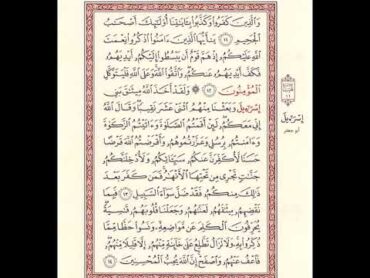 وَالَّذِينَ كَفَرُوا وَكَذَّبُوا بِـَٔايَٰتِنَا أُوْلَٰئِكَ أَصْحَٰبُ
الْجَحِيمِ ١١ يَٰأَيُّهَا الَّذِينَ ءَامَنُوا اذْكُرُوا نِعْمَتَ
اللَّهِ عَلَيْكُمُ إِذْ هَمَّ قَوْمٌ أَن يَبْسُطُوا إِلَيْكُمُ أَيْدِيَهُمُ
فَكَفَّ أَيْدِيَهُمُ عَنكُمُ وَاتَّقُوا اللَّهَ وَعَلَى اللَّهِ فَلْيَتَوَكَّلِ
الْمُومِنُونَ ١٢ وَلَقَدْ أَخَذَ اللَّهُ مِيثَٰقَ بَنِي
إِسْرَٰٓءِيلَ وَبَعَثْنَا مِنْهُمُ اثْنَيْ عْشَرَ نَقِيبًا وَقَالَ اللَّهُ
إِنِّي مَعَكُمُ لَئِنْ أَقَمْتُمُ الصَّلَوٰةَ وَءَاتَيْتُمُ الزَّكَوٰةَ
وَءَامَنتُمُ بِرُسُلِي وَعَزَّرْتُمُوهُمُ وَأَقْرَضْتُمُ اللَّهَ قَرْضًا
حَسَنًا لَأُكَفِّرَنَّ عَنكُمُ سَيِّـَٔاتِكُمُ وَلَأُدْخِلَنَّكُمُ
جَنَّٰتٍ تَجْرِي مِن تَحْتِهَا الْأَنْهَٰرُ فَمَن كَفَرَ بَعْدَ
ذَٰلِكَ مِنكُمُ فَقَدْ ضَلَّ سَوَاءَ السَّبِيلِ ١٣ فَبِمَا
نَقْضِهِمُ مِيثَٰقَهُمُ لَعَنَّٰهُمُ وَجَعَلْنَا قُلُوبَهُمُ قَٰسِيَةً
يُحَرِّفُونَ الْكَلِمَ عَن مَوَاضِعِهِ وَنَسُوا حَظًّا مِمَّا
ذُكِّرُوا بِهِ وَلَا تَزَالُ تَطَّلِعُ عَلَىٰ خَائِنَةٍ مِنْهُمُ إِلَّا قَلِيلًا مِنْهُمُ
فَاعْفُ عَنْهُمُ وَاصْفَحْ إِنَّ اللَّهَ يُحِبُّ الْمُحْسِنِينَ ١٤
إِسْرَٰٓءِيلَ
أبو جعفر